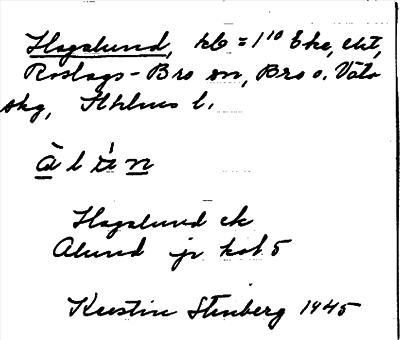 Hagalund, kb = 1¹⁰ Eke, cht,
Roslags-Bro sn, Bro o. Vätö
skg, Sthlms l.
àlón
Hagalund ek
Alund jr kat 5
Kerstin Stenberg 1945